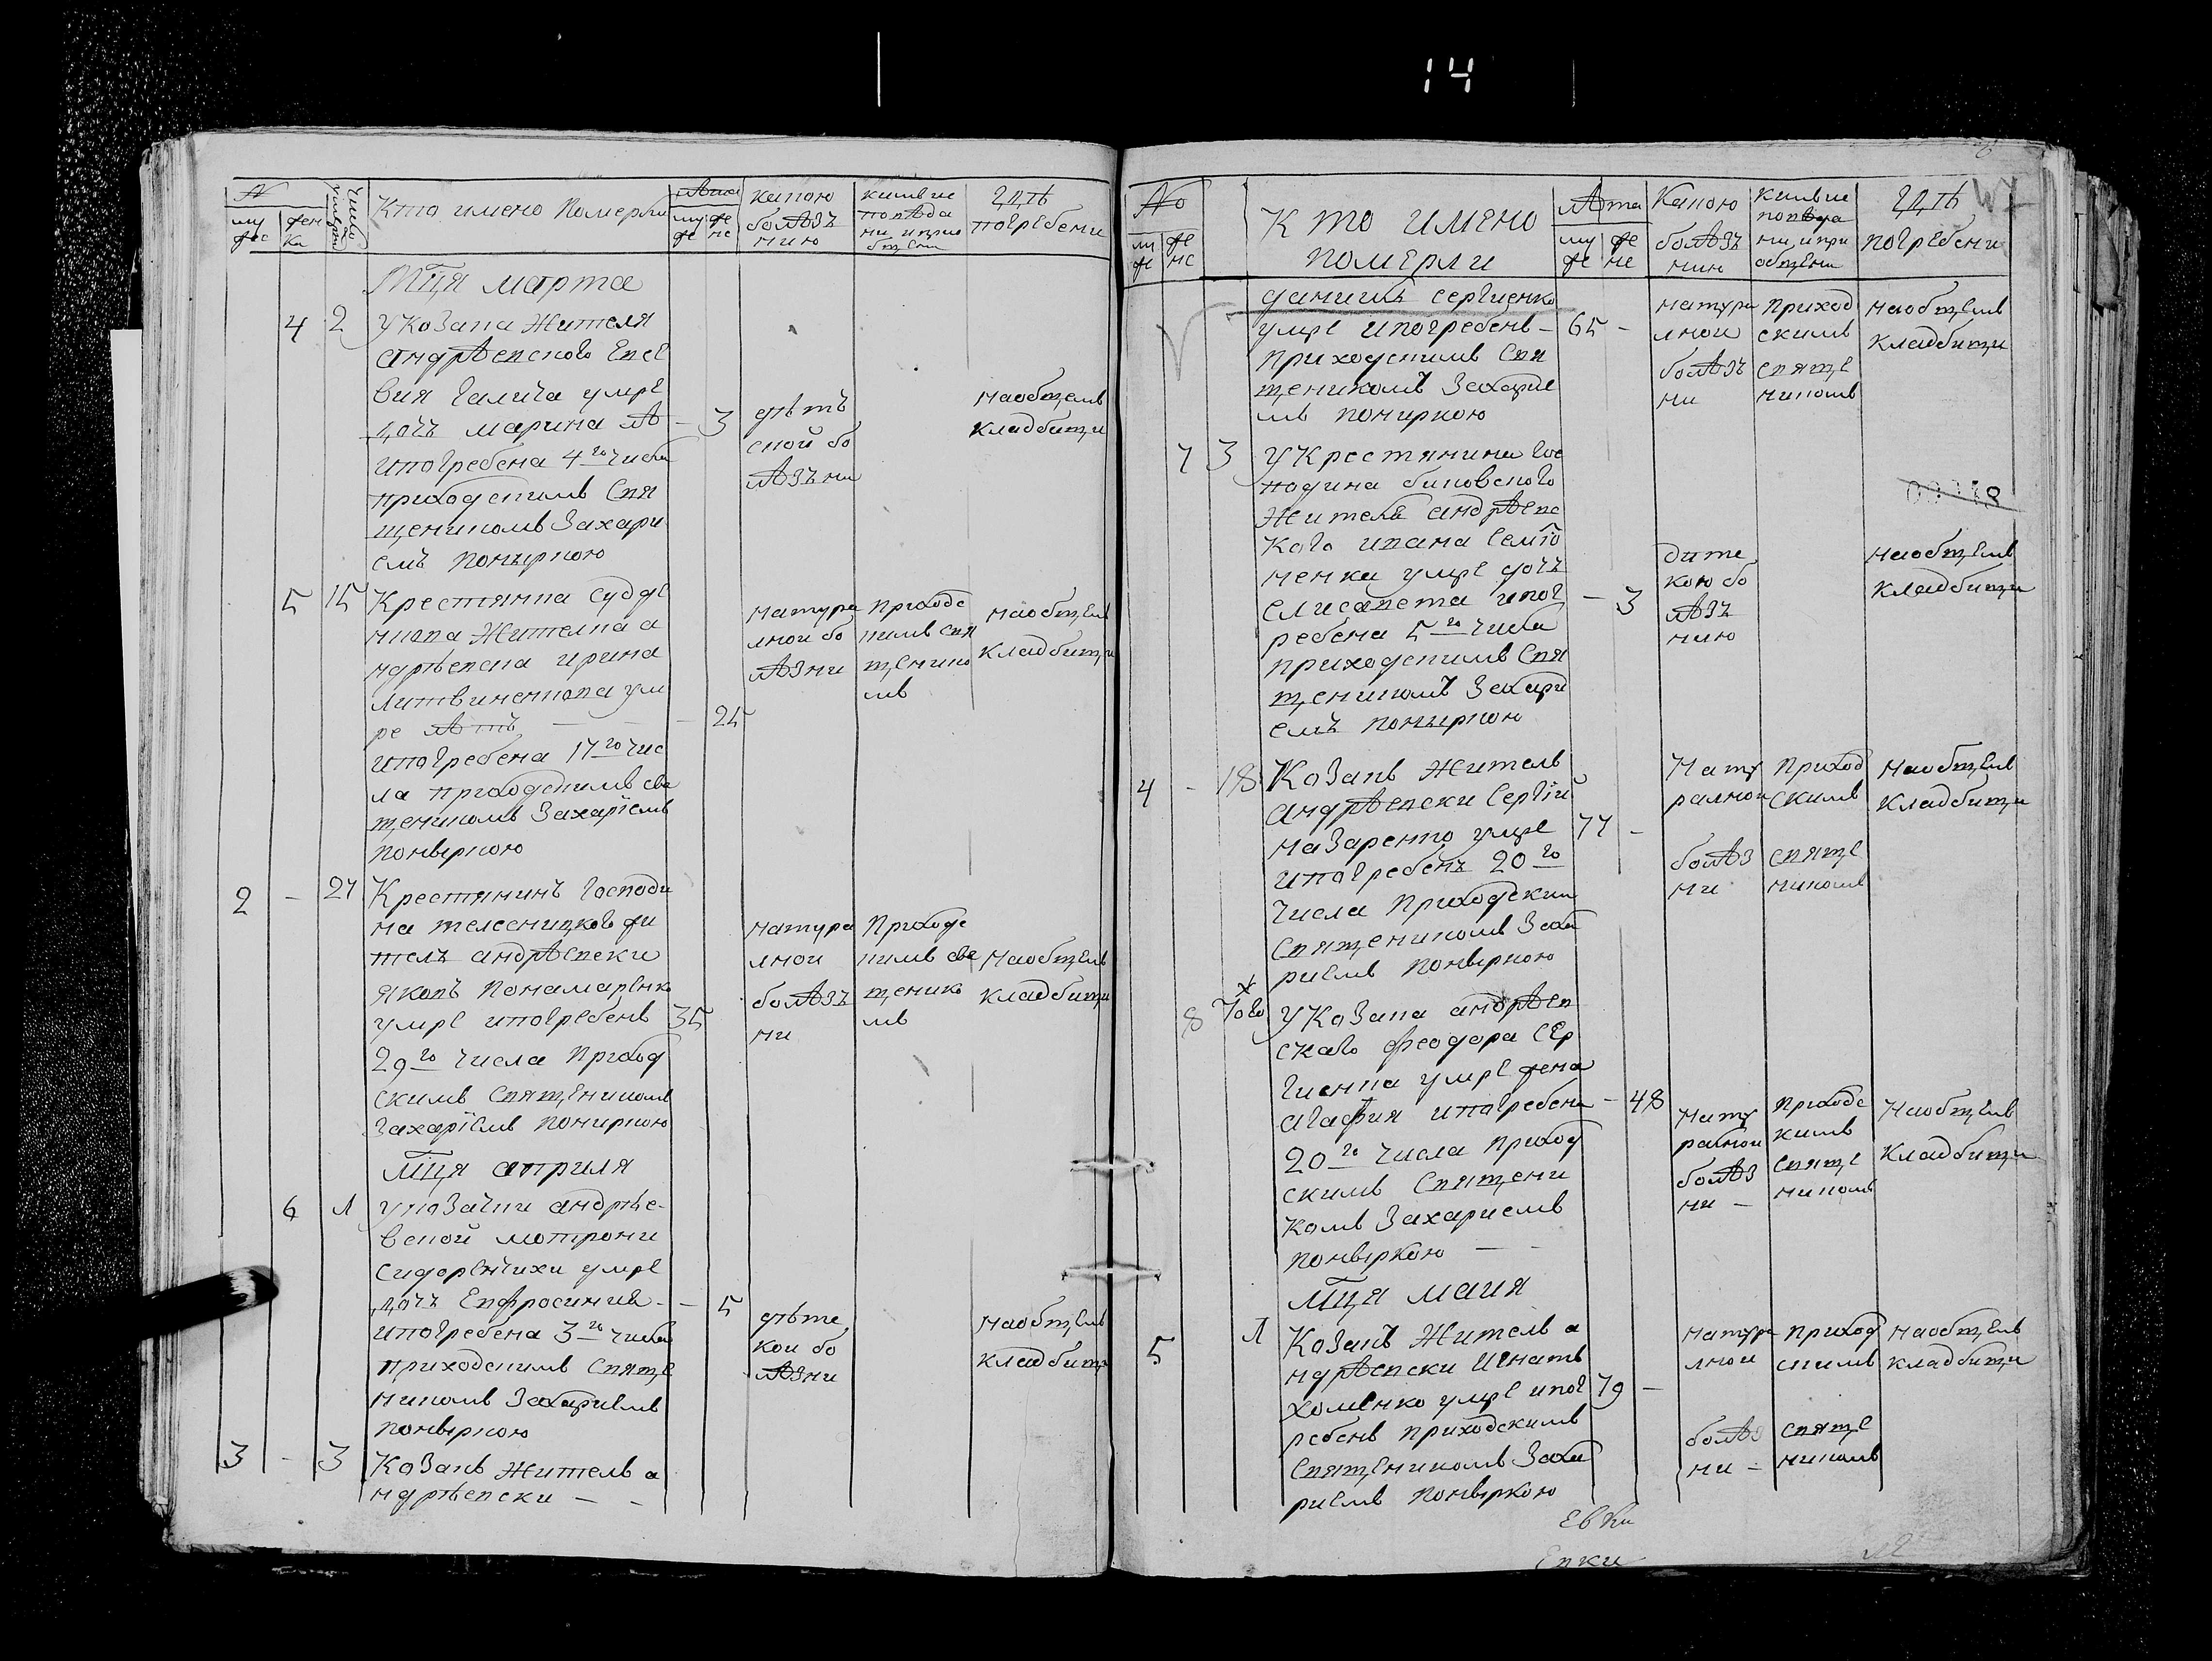 14
№
му
жес
жен
ка
Число
Кто имено померли
лѣта
му же
же нс
Какою
болѣзъ
нию
Кимъ ис
поведа
ни и прио
бщени
Гдѣ
погребени
Мця марта
4 2 У козака жителя
андрѣевского Евсе
вия Галича умре
дочъ марина лѣ - 3
и погребена 4го числа
приходскимъ свя
щеникомъ Захари
емъ Поныркою
дѣтъ
ской бо
лѣзъни
на общемъ
кладбищи
5 15 Крестянка судде
нкова жителка а
ндрѣевска ирина
литвиненкова ум
ре лѣтъ - - 25
и погребена 17го чис
ла приходскимъ све
щеникомъ Захаріемъ
Поныркою
натура
лной бо
лѣзни
приходс
кимъ свя
щенико
мъ
на общемъ
кладбищи
2 - 27 Крестянинъ Господи
на телесницкого жи
телъ андрѣевски
яковъ Понамаренко
умре и погребенъ 35
29го числа приход
скимъ священикомъ
Захаріемъ Поныркою
натура
лной
болѣзъ
ни
Приходс
кимъ све
щенико
мъ
на общемъ
кладбищи
Мця априля
6 1 У козачки андрѣе-
вской мотрони
Сидоренчихи умре
дочъ Евфросиния - - 5
и погребена 3го числа
приходскимъ свяще
никомъ Захариемъ
Поныркою
дѣтс
кой бо
лѣзни
на общемъ
кладбищи
3 - 3 Козакъ житель а
ндрѣевски - -
№
му
же
же
нс
Кто имено
померли
лѣта
му же
же не
Какою
болѣзъ
нию
Кимъ ис
поведа
ни, и при
общени
Гдѣ
погребени
данишъ Сергиенко
умре и погребенъ - 65 -
приходскимъ свя
щеникомъ Захарие
мъ Поныркою
натура
лной
болѣзъ
ни
приход
скимъ
свяще
никомъ
на общемъ
кладбищи
7 3 У крестянина гос
подина биковского
жителя андрѣевс
кого ивана Семіо
ненка умре дочъ
елисавета и пог - 3
ребена 5го числа
приходскимъ свя
щеникомъ Захари
емъ Поныркою
дитс
кою бо
лѣзъ
нию
на общемъ
кладбищи
4 - 18 Козакъ житель
андрѣевски Сергій
назаренко умре 77 -
и погребенъ 20го
числа приходским
священикомъ Заха
риемъ Поныркою
Нату
ралной
болѣз
ни
Приход
скимъ
свяще
никомъ
на общемъ
кладбищи
8 того У козака андрѣев
скаго Феодора Сер
гиенка умре жена
агафия и погребена - 48
20го числа приход
скимъ священи
комъ Захариемъ
Поныркою - -
Нату
ралной
болѣз
ни -
Приходс
кимъ
свяще
никомъ
на общемъ
кладбищи
Мця маия
5 1 Козакъ житель а
ндрѣевски Игнатъ
хоменко умре и пог 79 -
ребенъ приходскимъ
священикомъ Заха
риемъ Поныркою
натура
лной
болѣз
ни -
приход
скимъ
свяще
никомъ
на общемъ
кладбищи
Евки
Евки